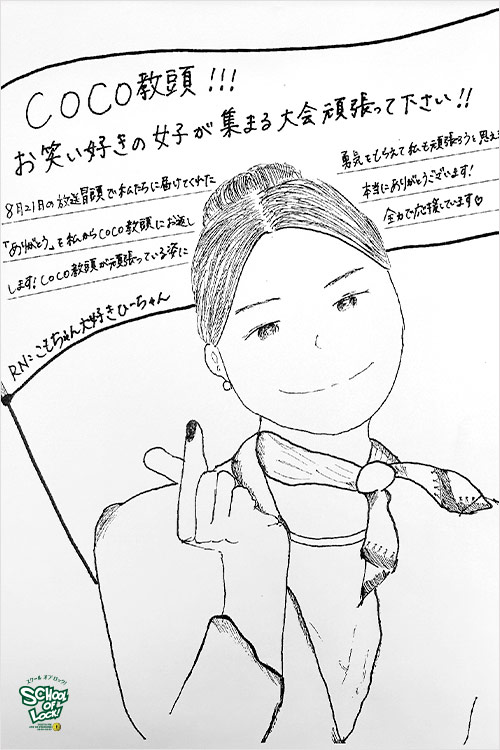 COCO教頭!!!
お笑い好きの女子が集まる大会頑張って下さい!!
8月21日の放送冒頭で私たちに届けてくれた
「ありがとう」を私からCOCO教頭にお返し
します!COCO教頭が頑張っている姿に
勇気をもらえて私も頑張ろうと思え
本当にありがとうございます!
全力で応援しています♡
RN:こもちゃん大好きひーちゃん
スクール オブ ロック!
SCHOOL
OF
LOCK!